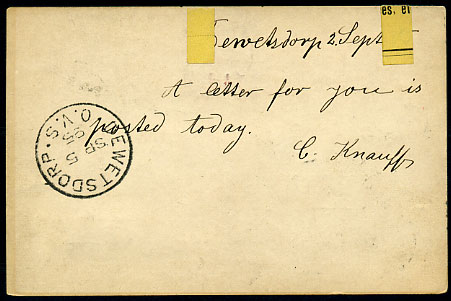 es, et
Dewetsdorp 2 Sept
A letter for you is
posted today.
C. Knauff
DEWETSDORP · O.V.S.
SP 5
95